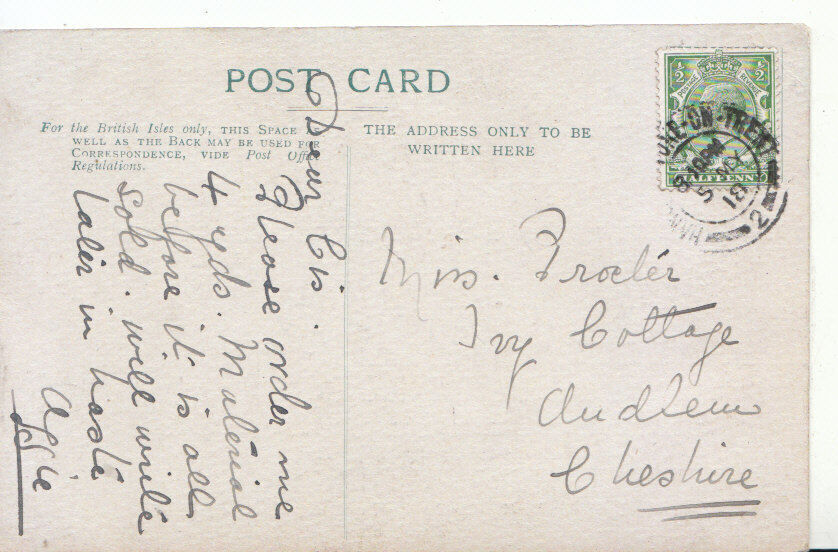 POST CARD
For the British Isles only, THIS SPACE AS
WELL AS THE BACK MAY BE USED FOR
CORRESPONDENCE, VIDE Post Office
Regulations.
THE ADDRESS ONLY TO BE
WRITTEN HERE
Dear Cis.
Please order me
4 yds. Material
before it is all
sold. will write
later in haste
Aggie
Miss. Procter
Ivy Cottage
Audlem
Cheshire
½ ½
POSTAGE REVENUE
HALFPENNY
STOKE-ON-TRENT
5 MY
18
2